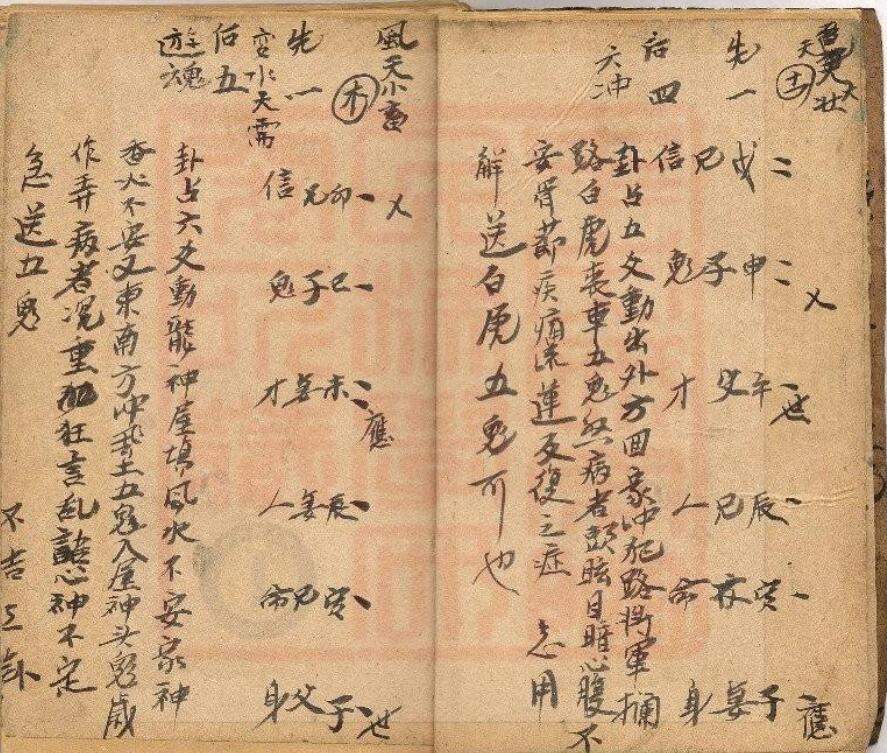 雷天大壯
土
先一
后四
六冲
二戌兄信
二申子鬼
乂
、午父才
世
、辰兄人
、寅官命
、子妻身
應
卦占五爻動出外方回家冲犯路将軍攔
路白虎喪車五鬼然病者頭眩目暗心腹不
安骨節疾痛流蓮反復之症 急用
解送白虎五鬼可也
風天小畜
木
先一
变水天需
后五
遊魂
乂
、卯兄信
、巳子鬼
、未妻才
應
、辰妻人
、寅兄命
、子父身
世
卦占六爻動龍神屋塲風水不安家神
香火不安又東南方冲動土五鬼入屋神头鬼歲
作弄病者况重狂言乱語心神不定
急送五鬼
不吉之卦